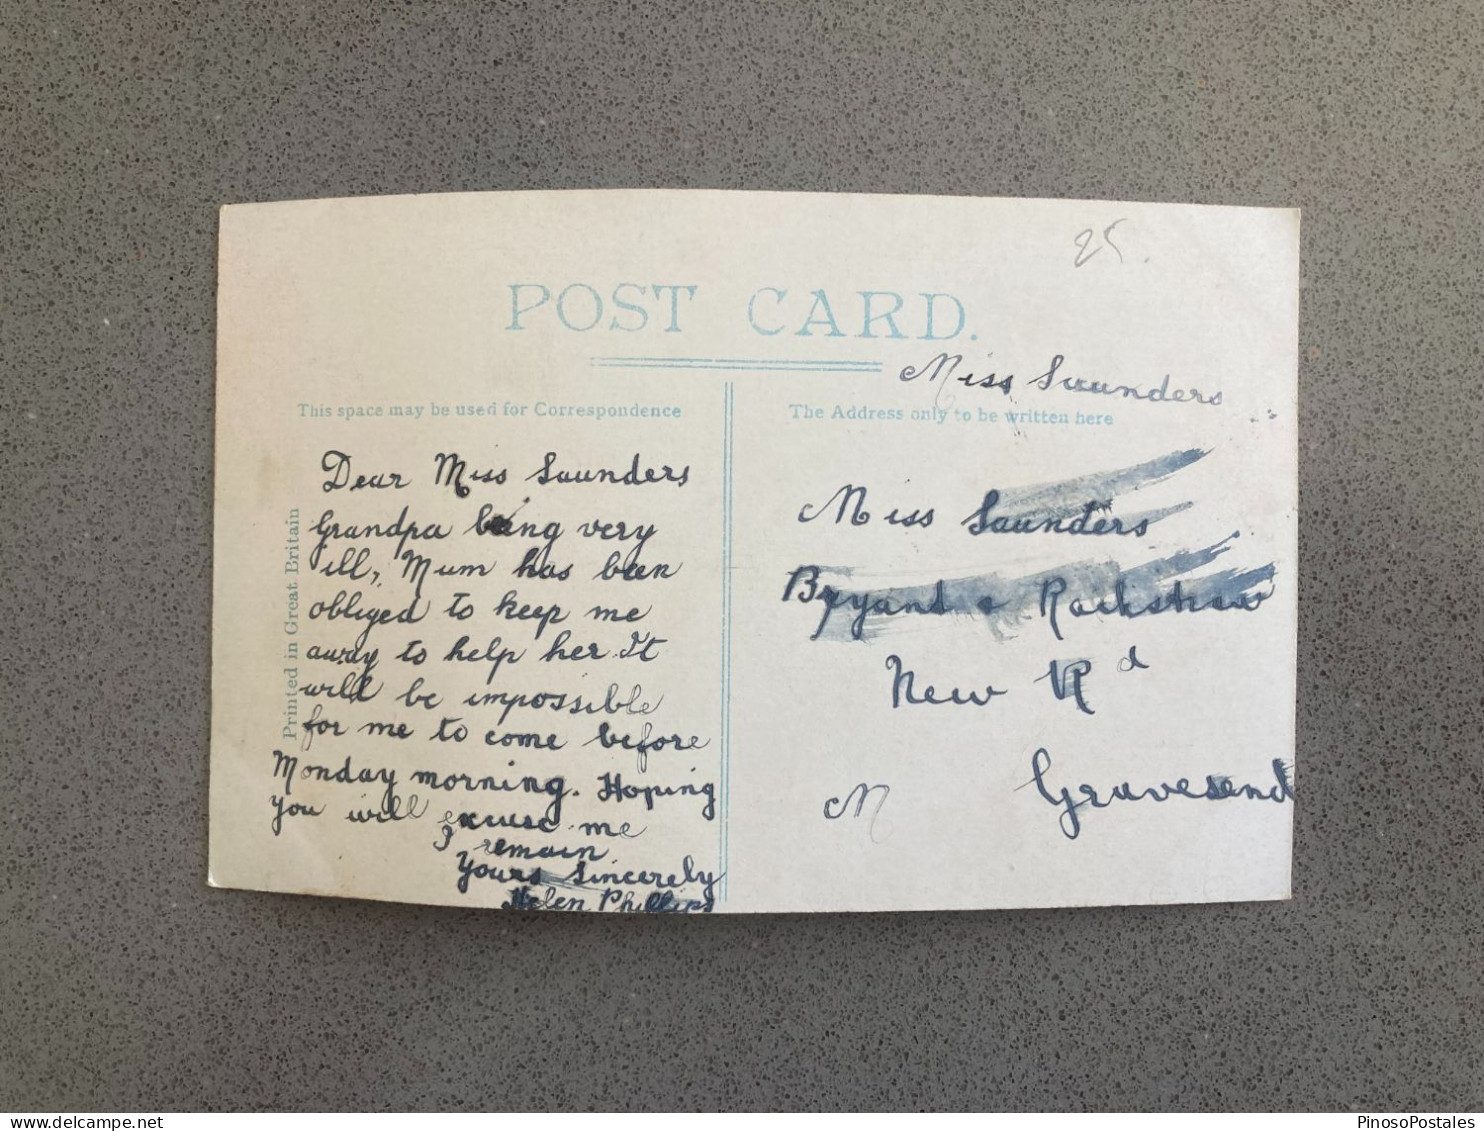 25.
POST CARD.
This space may be used for Correspondence
The Address only to be written here
Printed in Great Britain
Dear Miss Saunders
Grandpa being very
ill, Mum has been
obliged to keep me
away to help her. It
will be impossible
for me to come before
Monday morning. Hoping
you will excuse me
I remain
Yours Sincerely
Helen Phillips
Miss Saunders
Miss Saunders
Bryant & Rackstraw
New Rd
Gravesend
M
PinosoPostales